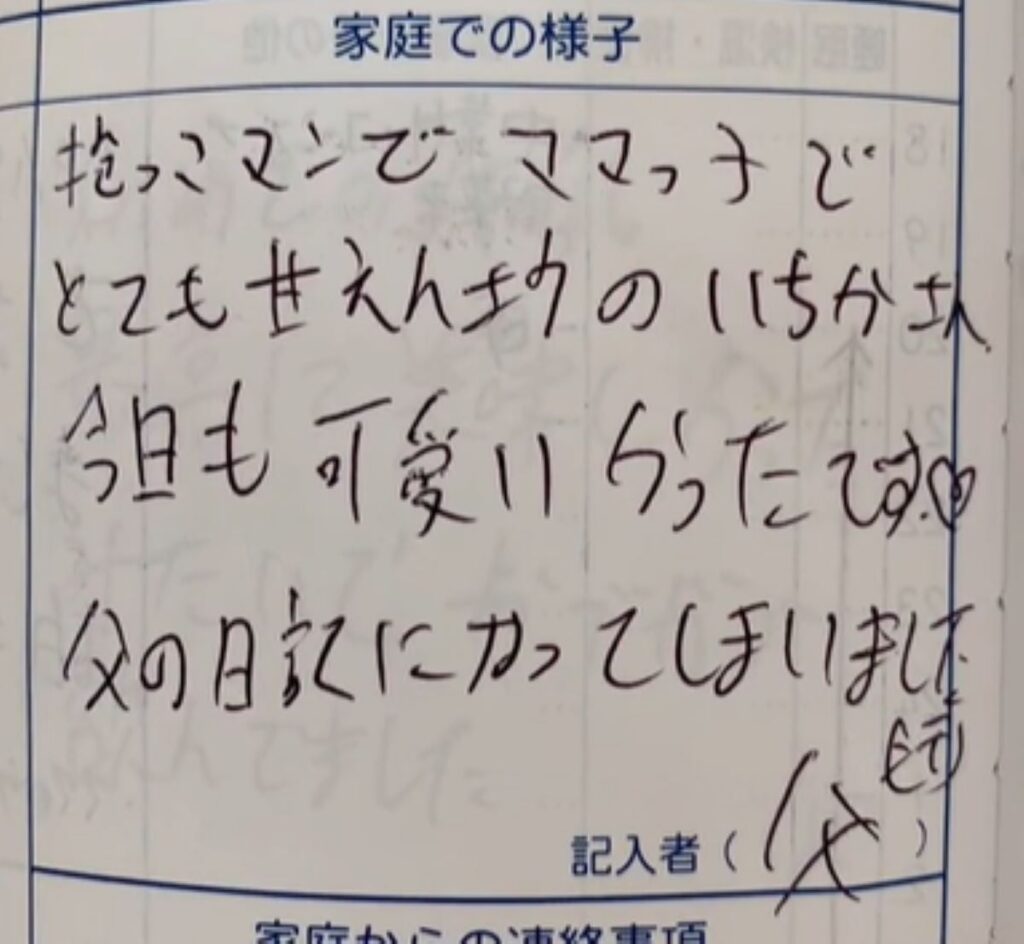 家庭での様子
抱っこマンで ママっ子で
とても甘えん坊の いちかさん
今日も 可愛いかったです♡
父の日記になってしまいました
記入者（父）
家庭からの連絡事項